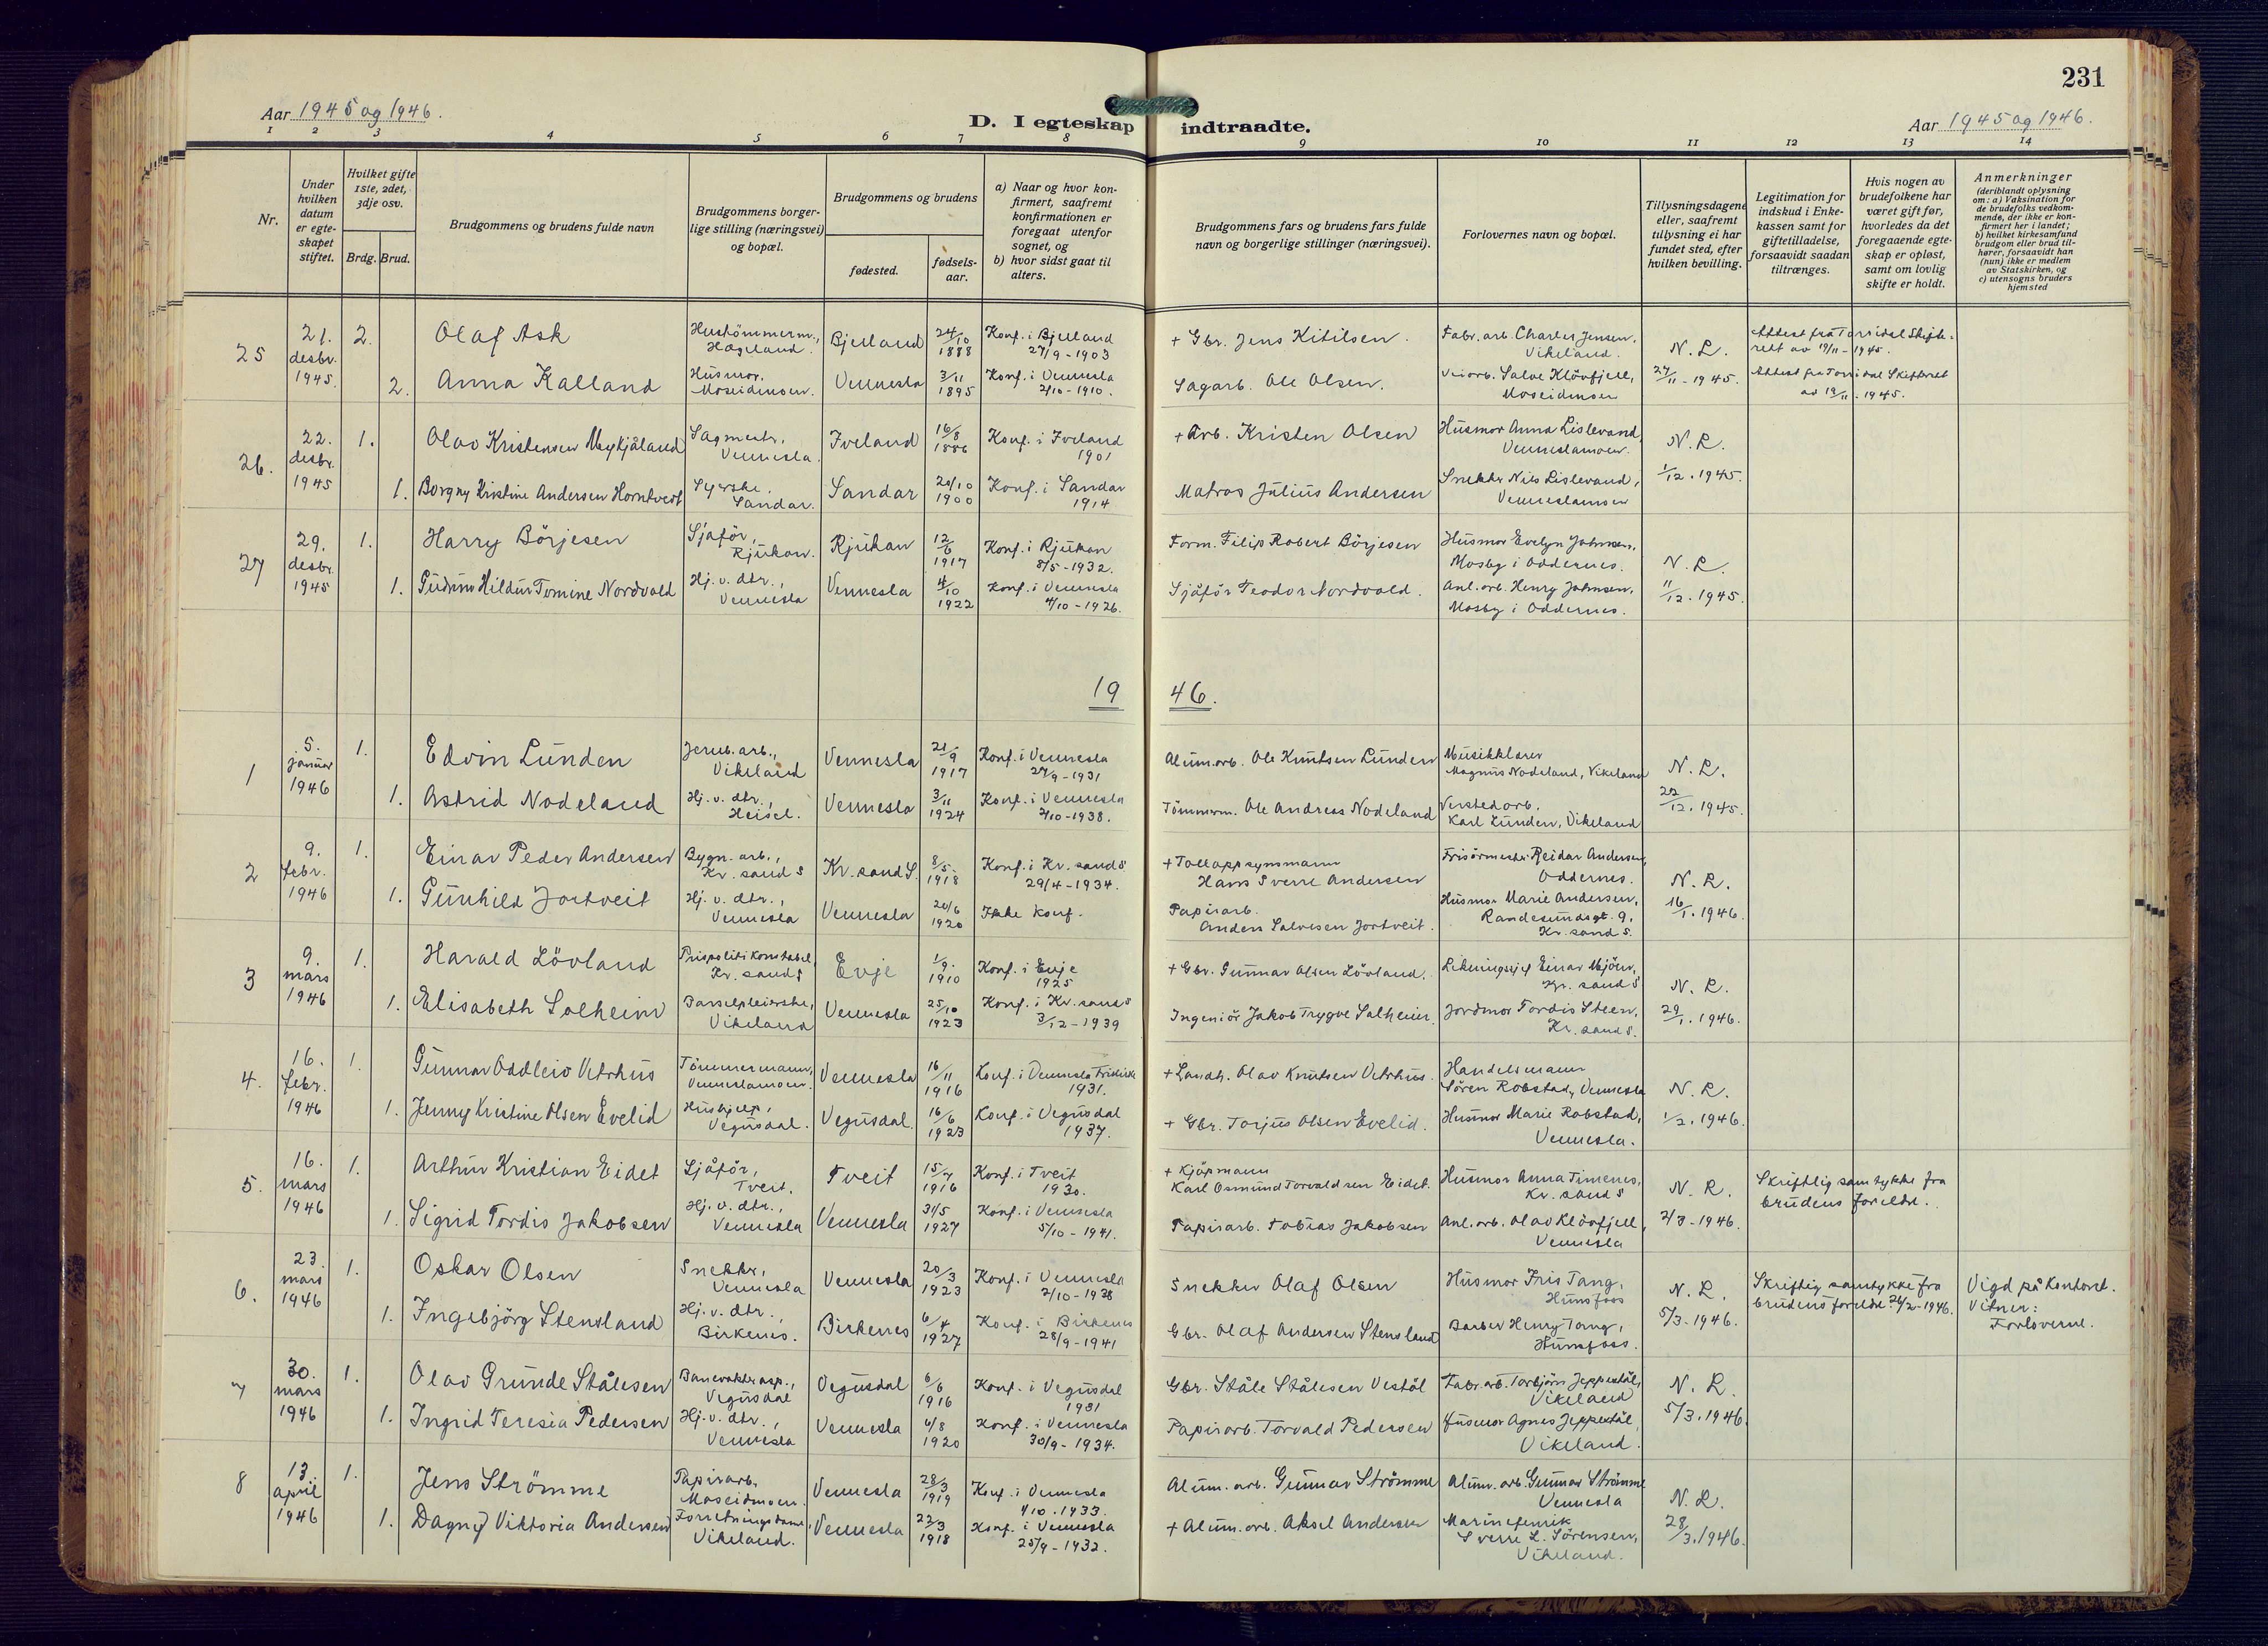 231
Aar 1945 og 1946.
D. I egteskap indtraadte.
Aar 1945 og 1946.
1 2 3 4 5 6 7 8 9 10 11 12 13 14
Nr.
Under hvilken datum er egteskapet stiftet.
Hvilket gifte 1ste, 2det, 3dje osv.
Brdg. Brud.
Brudgommens og brudens fulde navn
Brudgommens borgerlige stilling (næringsvei) og bopæl.
Brudgommens og brudens
fødested.
fødselsaar.
a) Naar og hvor konfirmert, saafremt konfirmationen er foregaat utenfor sognet, og
b) hvor sidst gaat til alters.
Brudgommens fars og brudens fars fulde navn og borgerlige stillinger (næringsvei).
Forlovernes navn og bopæl.
Tillysningsdagene eller, saafremt tillysning ei har fundet sted, efter hvilken bevilling.
Legitimation for indskud i Enkekassen samt for giftetilladelse, forsaavidt saadan tiltrænges.
Hvis nogen av brudefolkene har været gift før, hvorledes da det foregaaende egteskap er opløst, samt om lovlig skifte er holdt.
Anmerkninger
(deriblandt oplysning om: a) Vaksination for de brudefolks vedkommende, der ikke er konfirmert her i landet; b) hvilket kirkesamfund brudgom eller brud tilhører, forsaavidt han (hun) ikke er medlem av Statskirken, og c) utensogns bruders hjemsted
25 21. desbr. 1945. 2. Olaf Ask Hustömmerm., Hægeland. Bjelland 24/10 1888 Konf. i Bjelland 27/9-1903 + Gbr. Jens Kitilsen. Fabr. arb. Charles Jensen, Vikeland. N. L. Attest fra Torridal Skifterett av 19/11-1945.
2. Anna Kalland Husmor. Moseidmoen. Vennesla 3/11 1895 Konf. i Vennesla 2/10-1910. Sagarb. Ole Olsen. Veiarb. Salve Klövfjell, Moseidmoen 27/11-1945. Attest fra Torridal Skifterett av 19/11.1945.
26. 22. desbr. 1945 1. Olav Kristensen Mykjåland Sagmestr, Vennesla. Iveland 16/8 1886 Konf. i Iveland 1901 + Arb. Kristen Olsen Husmor Anna Lislevand, Venneslamoen. N. L.
1. Borgny Kristine Andersen Horntvedt Syerske, Sandar. Sandar 20/10 1900 Konf. i Sandar 1914 Matros Julius Andersen Snekker Nils Lislevand, Venneslamoen 1/12.1945.
27 29. desbr. 1945 1. Harry Börjesen Sjåför, Rjukan. Rjukan 12/6 1917 Konf. i Rjukan 8/5-1932. Form. Filip Robert Börjesen Husmor Evelyn Johnsen, Mosby i Oddernes. N. L.
1. Gudrun Hildur Tomine Nordvold Hj. v. dtr., Vennesla Vennesla 4/10 1922 Konf. i Vennesla 4/10-1926. Sjåför Teodor Nordvold. Anl. arb. Henry Johnsen, Mosby i Oddernes. 11/12.1945.
19 46.
1 5. januar 1946 1. Edvin Lunden Jernb. arb., Vikeland Vennesla 21/9 1917 Konf. i Vennesla 27/9-1931 Alum. arb. Ole Knutsen Lunden Musikklærer Magnus Nodeland, Vikeland N. L.
1. Astrid Nodeland Hj. v. dtr., Heisel. Vennesla 3/11 1924 Konf. i Vennesla 2/10-1938. Tömmerm. Ole Andreas Nodeland Verkstedarb. Karl Lunden, Vikeland 22/12.1945.
2 9. febr. 1946 1. Einar Peder Andersen Bygn. arb., Kr. sand S Kr. sand S. 8/5. 1918 Konf. i Kr. sand S 29/4-1934. + Tolloppsynsmann Hans Sverre Andersen Frisörmester Reidar Andersen, Oddernes. N. L.
1. Gunhild Jortveit Hj. v. dtr., Vennesla Vennesla 20/6 1920 Ikke konf. Papirarb. Anders Salvesen Jortveit. Husmor Marie Andersen, Randesundsgt. 9, Kr. sand S. 16/1.1946.
3 9. mars 1946 1. Harald Lövland Prispolitikonstabel, Kr. sand S Evje 1/9. 1910 Konf. i Evje 1925 + Gbr. Gunnar Olsen Lövland. Likningssjef Einar Mjöen, Kr. sand S N. L.
1. Elisabeth Solheim Barselpleierske, Vikeland Vennesla 25/10 1923 Konf. i Kr. sand S 3/12-1939 Ingeniör Jakob Trygve Solheim. Jordmor Tordis Steen, Kr. sand S. 29/1.1946.
4. 16. febr. 1946 1. Gunnar Oddleiv Vetrhus Tömmermann, Venneslamoen. Vennesla 16/11 1916 Konf. i Vennesla Frikirke 1931. + Landh. Olav Knutsen Vetrhus. Handelsmann Sören Robstad, Vennesla N. L.
1. Jenny Kristine Olsen Evelid Hushjelp, Vegusdal. Vegusdal. 16/6 1923 Konf. i Vegusdal 1937. + Gbr. Torjus Olsen Evelid. Husmor Marie Robstad, Vennesla. 1/2.1946.
5. 16. mars 1946 1. Arthur Kristian Eidet Sjåför, Tveit. Tveit 15/7 1916 Konf. i Tveit 1930. + Kjöpmann Karl Osmund Torvaldsen Eidet. Husmor Anna Timenes, Kr. sand S N. L. Skriftlig samtykke fra brudens foreldre.
1. Sigrid Tordis Jakobsen Hj. v. dtr., Vennesla Vennesla 31/5 1927 Konf. i Vennesla 5/10-1941. Papirarb. Tobias Jakobsen Anl. arb. Olav Klövfjell, Vennesla 2/3-1946.
6. 23. mars 1946 1. Oskar Olsen Snekker, Vennesla Vennesla 20/3 1923 Konf. i Vennesla 2/10-1938 Snekker Olaf Olsen Husmor Iris Tang, Hunsfoss N. L. Skriftlig samtykke fra brudens foreldre 26/2-1946. Vigd på kontoret. Vitner: Forloverne.
1. Ingebjörg Stensland Hj. v. dtr., Birkenes. Birkenes 6/4 1927 Konf. i Birkenes 28/9-1941 Gbr. Olaf Andersen Stensland Barber Henry Tang, Hunsfoss. 5/3-1946.
7 30. mars 1946 1. Olav Grunde Stålesen Banevokterasp., Vegusdal Vegusdal 6/6 1916 Konf. i Vegusdal 1931 Gbr. Ståle Stålesen Vestöl Fabr. arb. Torbjörn Jeppestöl, Vikeland N. L.
1. Ingrid Teresia Pedersen Hj. v. dtr., Vennesla Vennesla 4/8 1920 Konf. i Vennesla 30/9-1934. Papirarb. Torvald Pedersen Husmor Agnes Jeppestöl, Vikeland. 5/3.1946.
8 13. april 1946 1. Jens Strömme Papirarb. Moseidmoen. Vennesla 28/3 1919 Konf. i Vennesla 1/10.1933. Alum. arb. Gunnar Strömme Alum. arb. Gunnar Strömme Vennesla N. L.
1. Dagny Viktoria Andersen Forretningsdame, Vikeland. Vennesla 22/3 1918 Konf. i Vennesla 25/9-1932. + Alum. arb. Aksel Andersen Marinefenrik Sverre L. Sörensen, Vikeland. 28/3.1946.